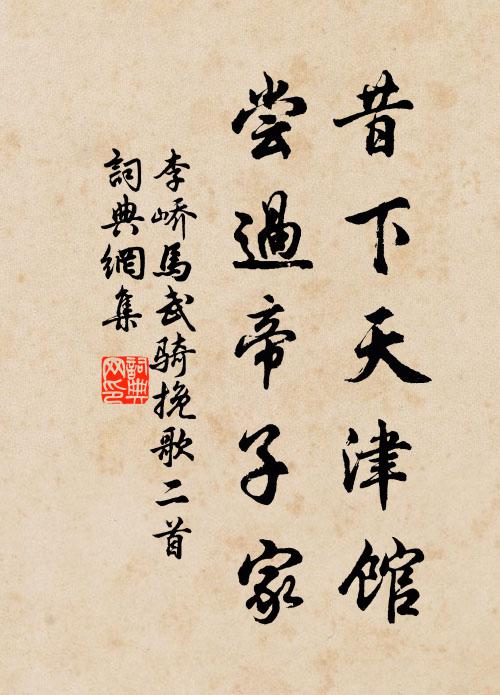 昔下天津館
嘗過帝子家
李嶠馬武騎挽歌二首
詞典網集
詞典網印